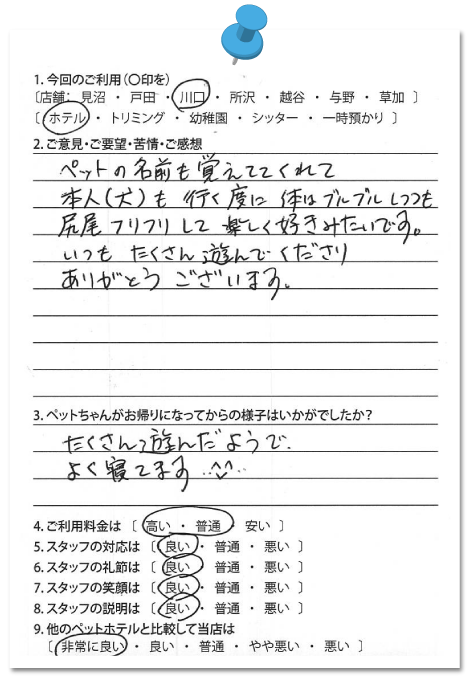 1. 今回のご利用(〇印を)
〔店舗: 見沼 ・ 戸田 ・ 川口 ・ 所沢 ・ 越谷 ・ 与野 ・ 草加 〕
〔 ホテル ・ トリミング ・ 幼稚園 ・ シッター ・ 一時預かり 〕
2. ご意見・ご要望・苦情・ご感想
ペットの名前も覚えててくれて
本人(犬)も 行く度に 体はブルブルしつつも
尻尾フリフリして 楽しく好きみたいです。
いつも たくさん遊んでくださり
ありがとう ございます。
3. ペットちゃんがお帰りになってからの様子はいかがでしたか?
たくさん遊んだようで、
よく寝てます
4. ご利用料金は 〔 高い ・ 普通 ・ 安い 〕
5. スタッフの対応は 〔 良い ・ 普通 ・ 悪い 〕
6. スタッフの礼節は 〔 良い ・ 普通 ・ 悪い 〕
7. スタッフの笑顔は 〔 良い ・ 普通 ・ 悪い 〕
8. スタッフの説明は 〔 良い ・ 普通 ・ 悪い 〕
9. 他のペットホテルと比較して当店は
〔 非常に良い ・ 良い ・ 普通 ・ やや悪い ・ 悪い 〕